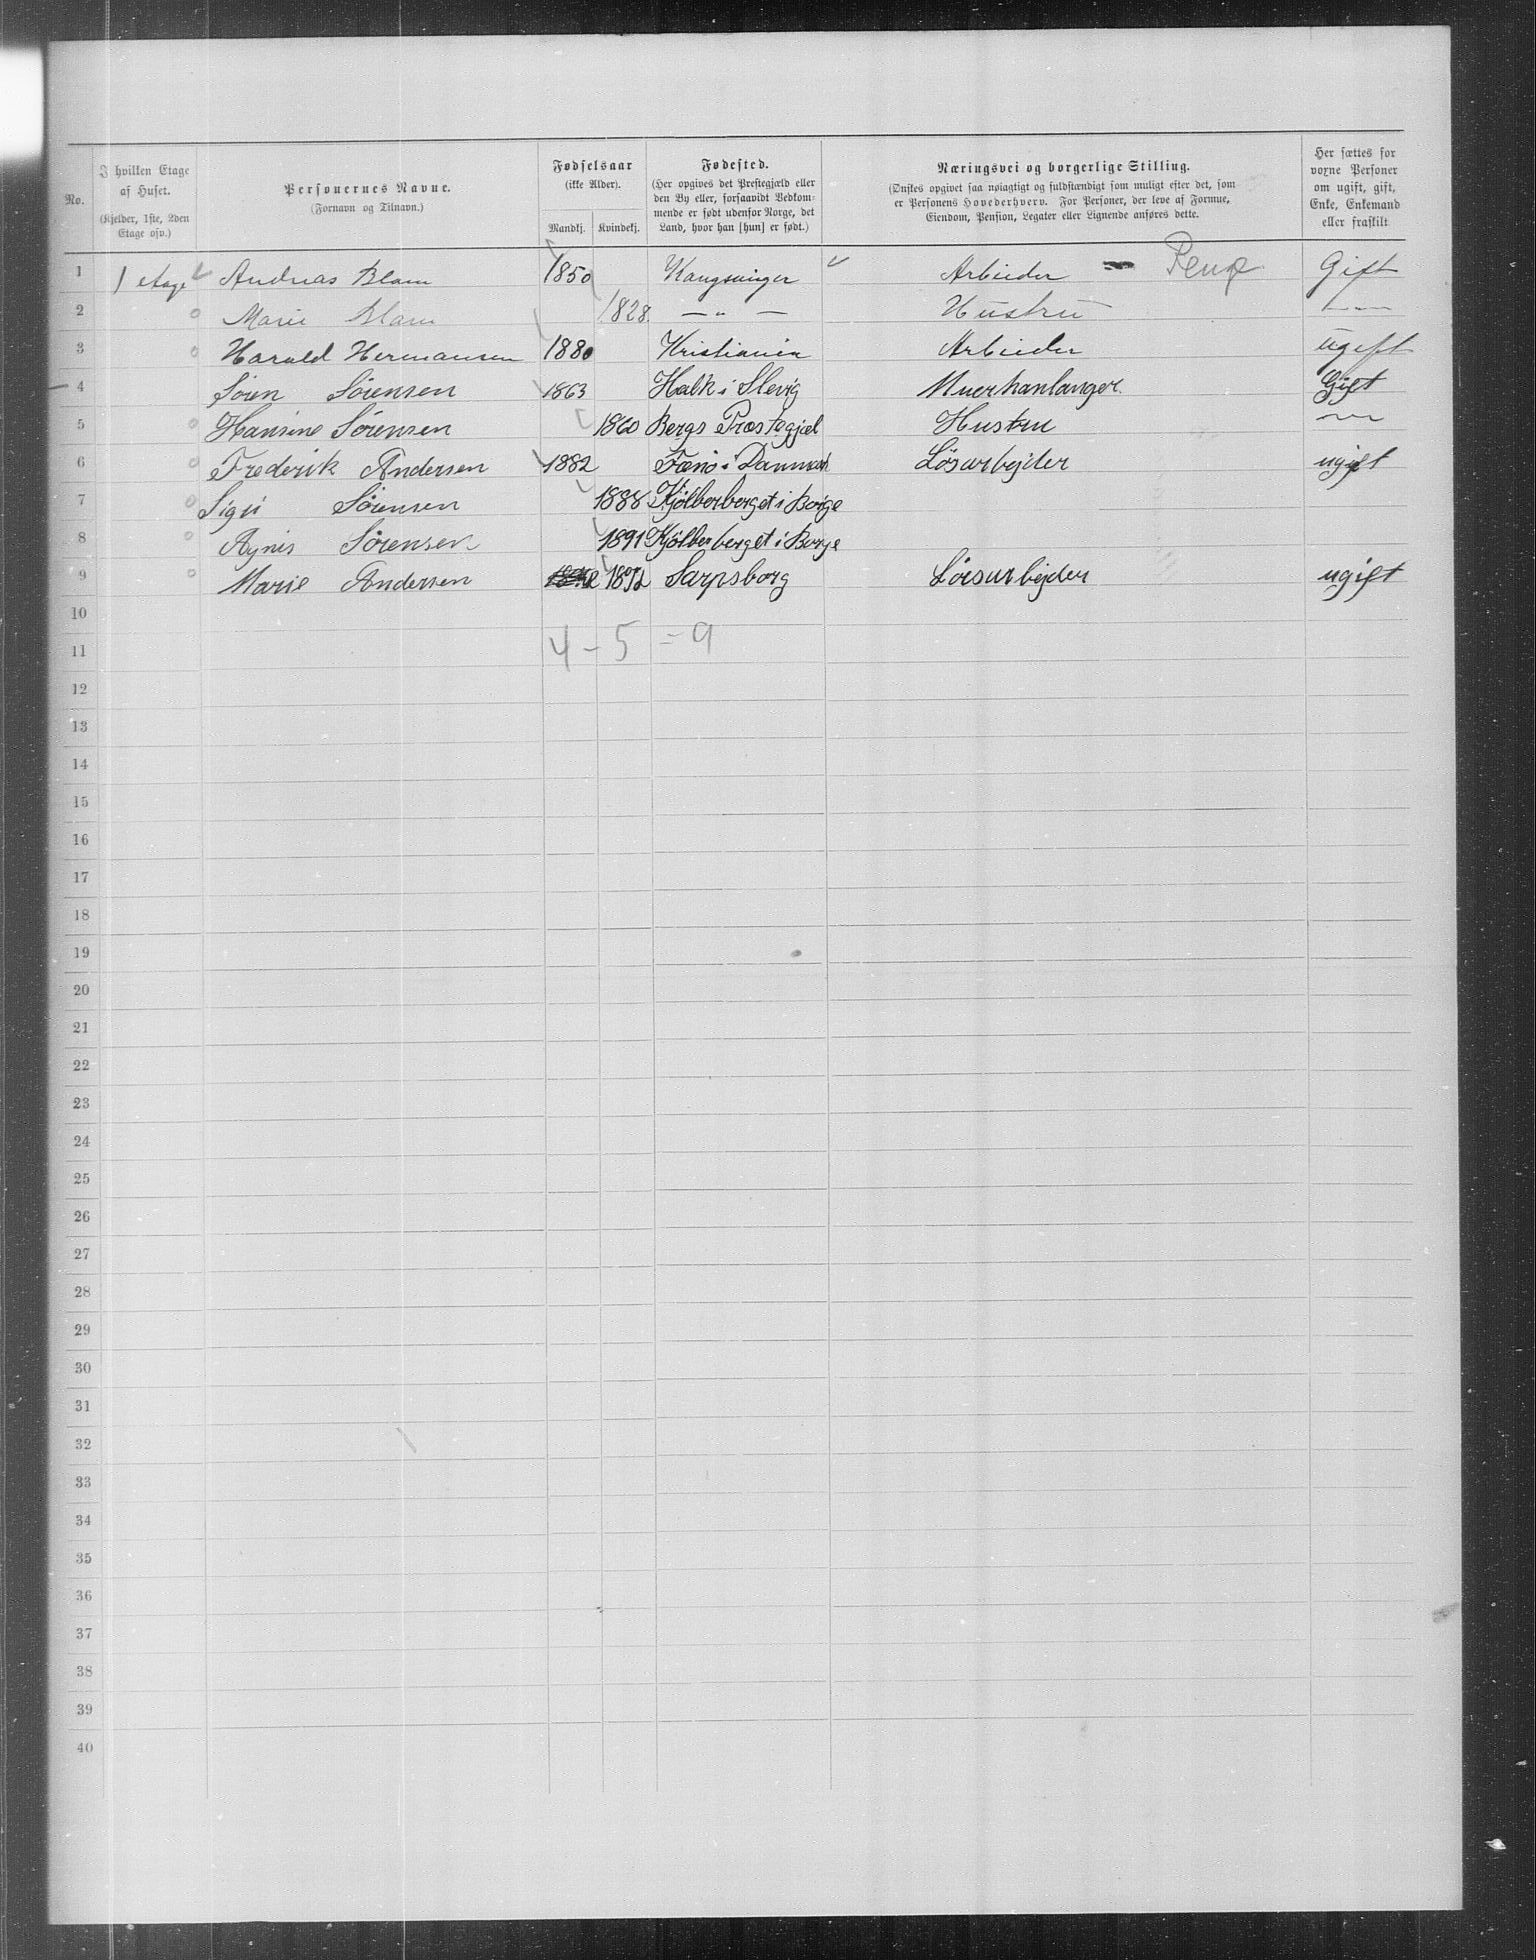 No.
I hvilken Etage af Huset.
(Kjelder, 1ste, 2den Etage osv.)
Personernes Navne.
(Fornavn og Tilnavn.)
Fødselsaar
(ikke Alder).
Mandkj. Kvindekj.
Fødested.
(Her opgives det Prestegjæld eller den By eller, forsaavidt Vedkommende er født udenfor Norge, det Land, hvor han [hun] er født.)
Næringsvei og borgerlige Stilling.
(Ønskes opgivet saa nøiagtigt og fuldstændigt som muligt efter det, som er Personens Hovederhverv. For Personer, der leve af Formue, Eiendom, Pension, Legater eller Lignende anføres dette.
Her sættes for voxne Personer om ugift, gift, Enke, Enkemand eller fraskilt
1 1 etage Andreas Blam 1850 Kangsvinger Arbieder Gift
2 Marie Blam 1828. — „ — Hustru —„—
3 Harald Hermansen 1880 Kristiania Arbieder ugift
4 Sören Sörensen 1863 Halk i Slevig Muerhanlanger. Gift
5 Hansine Sörensen 1860 Bergs Præstegjæl Hustru —„—
6 Frederik Andersen 1882 i Danmark Lösarbejder ugift
7 Sigri Sörensen 1888 Kjölberberget i Borge
8 Agnes Sörensen 1891 Kjölberberget i Borge
9 Marie Andersen 1872 Sarpsborg Löisarbejder ugift
10
11 4 – 5 = 9
12
13
14
15
16
17
18
19
20
21
22
23
24
25
26
27
28
29
30
31
32
33
34
35
36
37
38
39
40